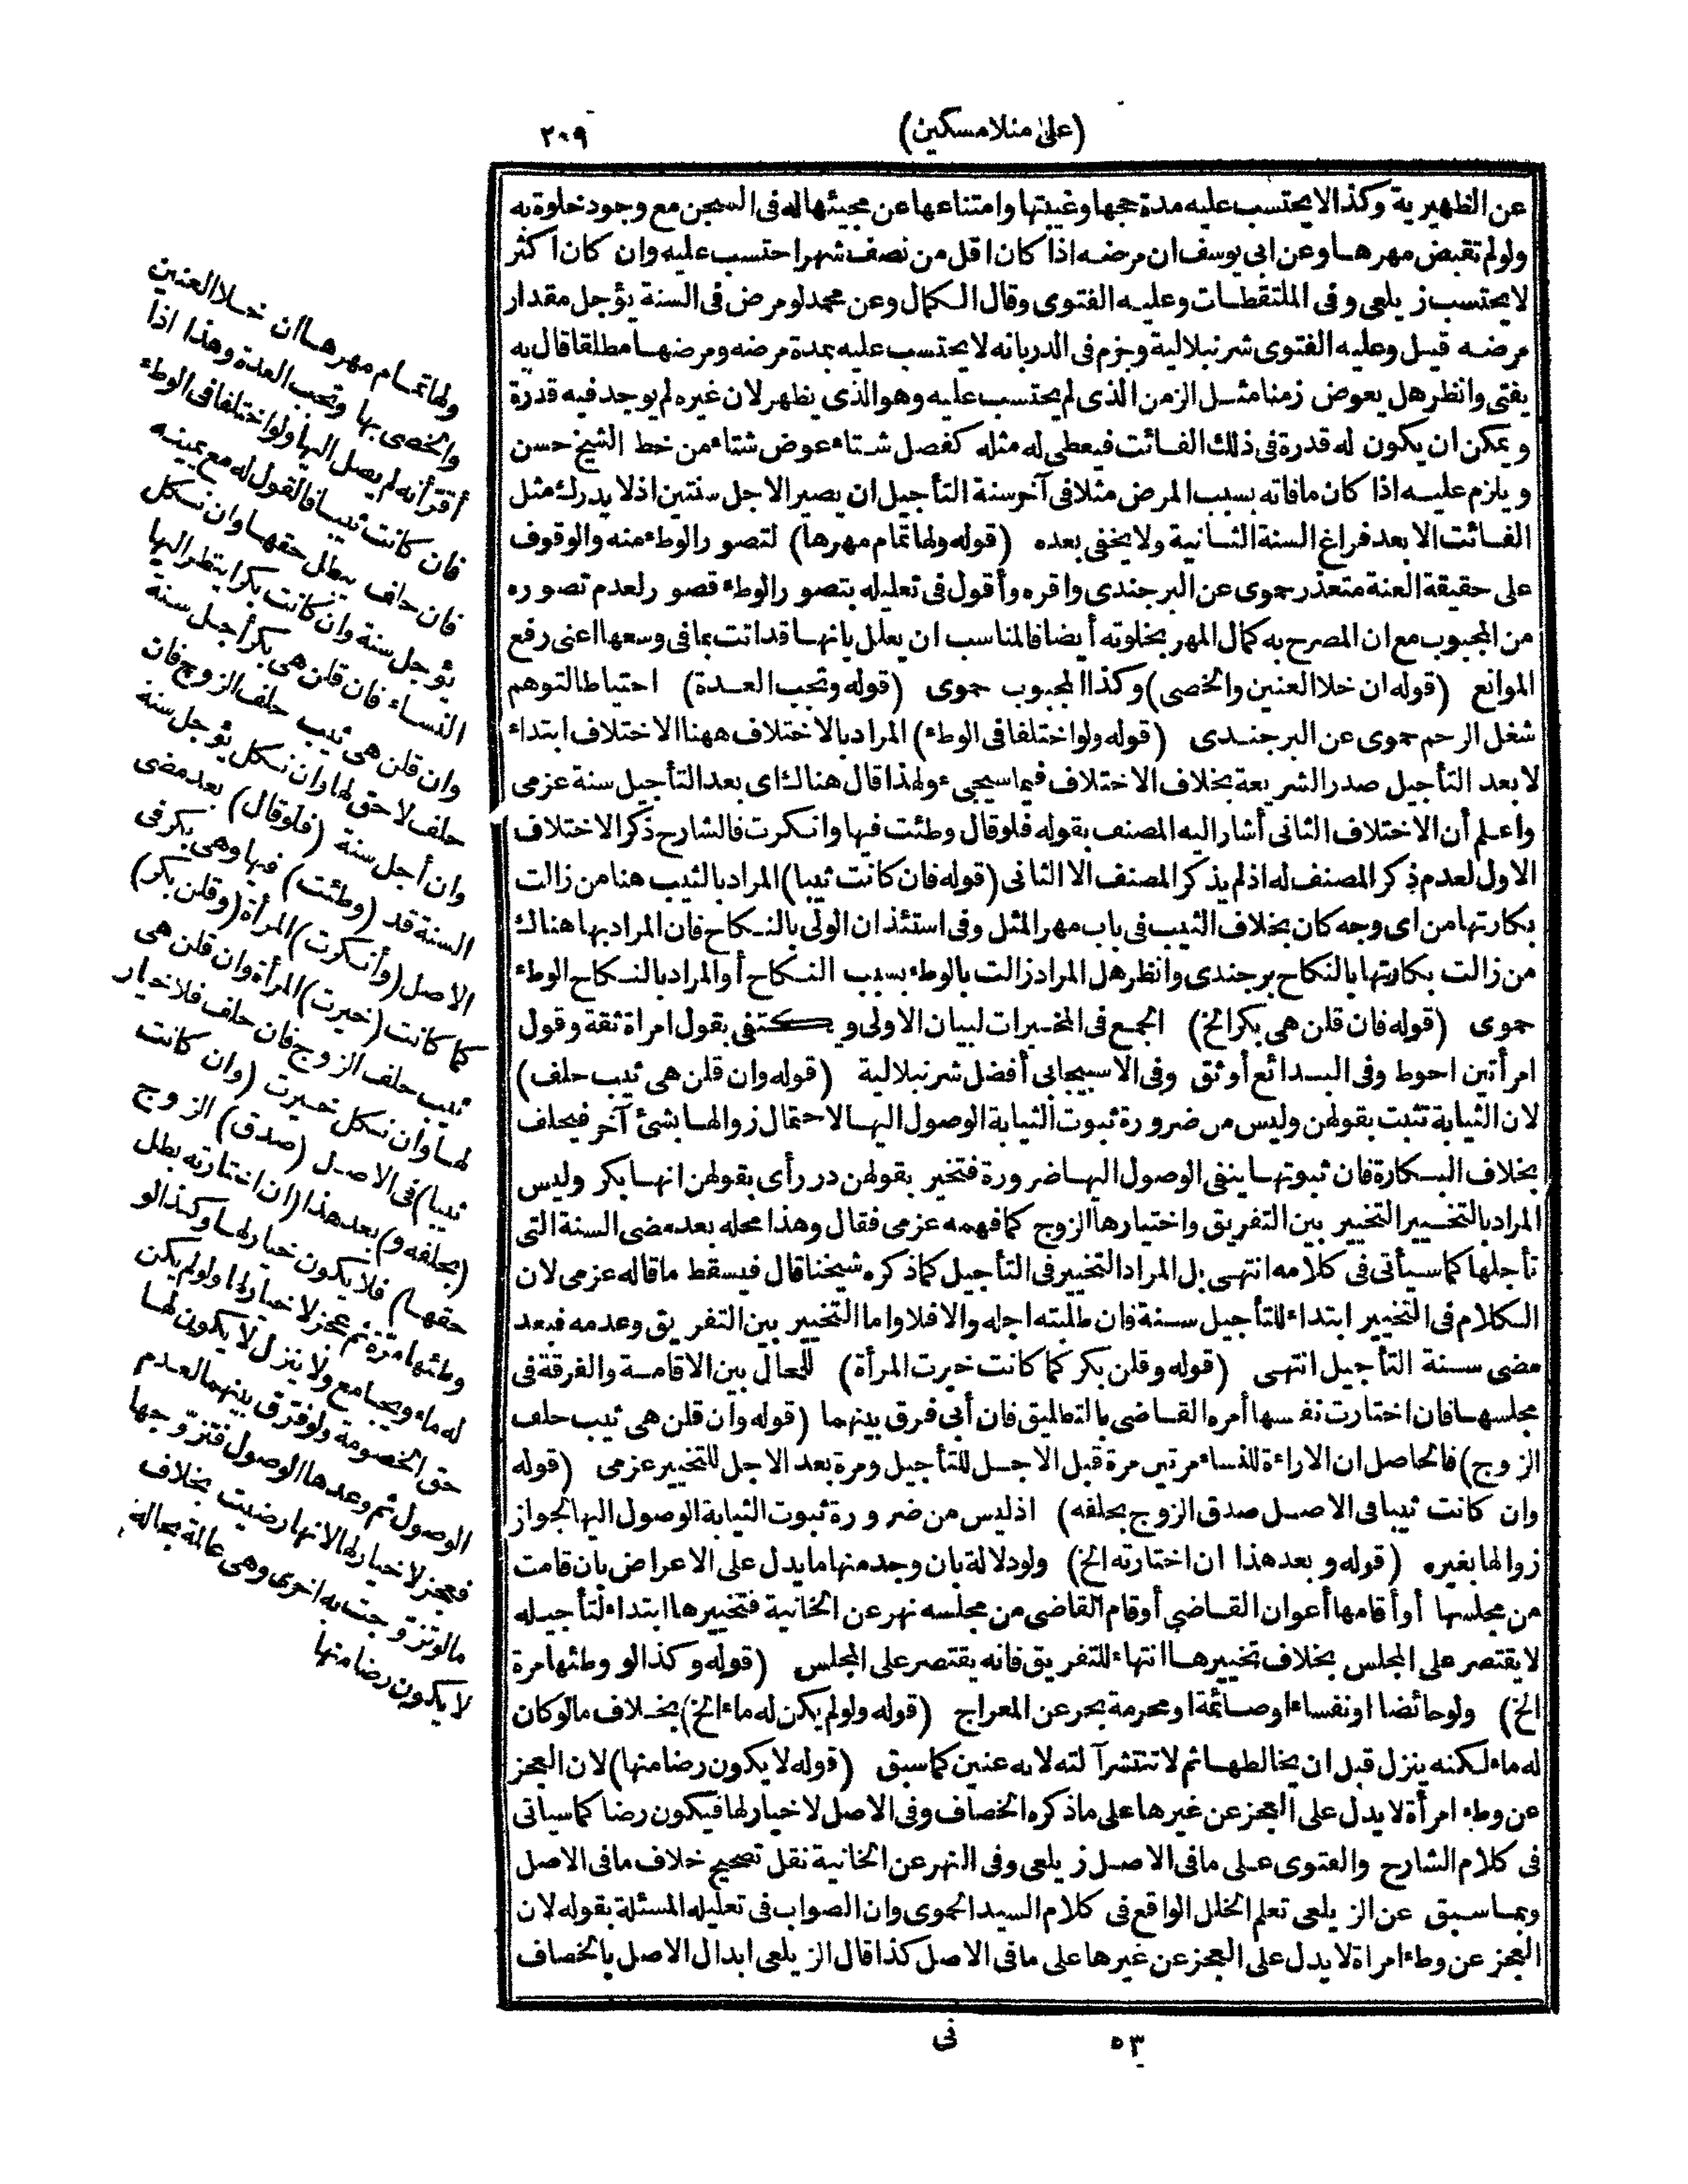 (على منلا مسكين)
٢٠٩
عن الظهيرية وكذا لا يحتسب عليه مدة حجها وغيبتها وامتناعها عن مجيئها له فى السجن مع وجود خلوة به
ولو لم تقبض مهرها وعن ابى يوسف ان مرضه اذا كان اقل من نصف شهر احتسب عليه وان كان اكثر
لا يحتسب زيلعى وفى الملتقطات وعليه الفتوى وقال الكمال وعن محمد لو مرض فى السنة يؤجل مقدار
مرضه قيل وعليه الفتوى شرنبلالية وجزم فى الدر بانه لا يحتسب عليه بمدة مرضه ومرضها مطلقا قال به
يفتى وانظر هل يعوض زمنا مثل الزمن الذى لم يحتسب عليه وهو الذى يظهر لان غيره لم يوجد فيه قدرة
ويمكن ان يكون له قدرة فى ذلك الفائت فيعطى له مثله كفصل شتاء عوض شتاء من خط الشيخ حسن
ويلزم عليه اذا كان ما فاته بسبب المرض مثلا فى آخر سنة التأجيل ان يصير الاجل سنتين اذ لا يدرك مثل
الفائت الا بعد فراغ السنة الثانية ولا يخفى بعده (قوله ولها تمام مهرها) لتصور الوطء منه والوقوف
على حقيقة العنة متعذر حموى عن البرجندى واقره وأقول فى تعليله بتصور الوطء قصور لعدم تصوره
من المجبوب مع ان المصرح به كمال المهر بخلوته أيضا فالمناسب ان يعلل بانها قد اتت بما فى وسعها اعنى رفع
الموانع (قوله ان خلا العنين والخصى) وكذا المجبوب حموى (قوله وتجب العدة) احتياطا لتوهم
شغل الرحم حموى عن البرجندى (قوله ولو اختلفا فى الوطء) المراد بالاختلاف ههنا الاختلاف ابتداء
لا بعد التأجيل صدر الشريعة بخلاف الاختلاف فيما سيجىء ولهذا قال هناك اى بعد التأجيل سنة عزمى
واعلم أن الاختلاف الثانى أشار اليه المصنف بقوله فلو قال وطئت فيها وانكرت فالشارح ذكر الاختلاف
الاول لعدم ذكر المصنف له اذ لم يذكر المصنف الا الثانى (قوله فان كانت ثيبا) المراد بالثيب هنا من زالت
بكارتها من اى وجه كان بخلاف الثيب فى باب مهر المثل وفى استئذان الولى بالنكاح فان المراد بها هناك
من زالت بكارتها بالنكاح برجندى وانظر هل المراد زالت بالوطء بسبب النكاح أو المراد بالنكاح الوطء
حموى (قوله فان قلن هى بكر الخ) الجمع فى المخبرات لبيان الاولى ويكتفى بقول امراة ثقة وقول
امرأتين احوط وفى البدائع أوثق وفى الاسبيجابى أفضل شرنبلالية (قوله وان قلن هى ثيب حلف)
لان الثيابة تثبت بقولهن وليس من ضرورة ثبوت الثيابة الوصول اليها لاحتمال زوالها بشئ آخر فيحلف
بخلاف البكارة فان ثبوتها ينفى الوصول اليها ضرورة فتخير بقولهن درر أى بقولهن انها بكر وليس
المراد بالتخيير التخيير بين التفريق واختيارها الزوج كما فهمه عزمى فقال وهذا محله بعد مضى السنة التى
تأجلها كما سيأتى فى كلامه انتهى بل المراد التخيير فى التأجيل كما ذكره شيخنا قال فيسقط ما قاله عزمى لان
الكلام فى التخيير ابتداء للتأجيل سنة فان طلبته اجله والا فلا واما التخيير بين التفريق وعدمه فبعد
مضى سنة التأجيل انتهى (قوله وقلن بكر كما كانت خيرت المرأة) للحال بين الاقامة والفرقة فى
مجلسها فان اختارت نفسها أمره القاضى بالتطليق فان أبى فرق بينهما (قوله وان قلن هى ثيب حلف
الزوج) فالحاصل ان الاراءة للنساء مرتين مرة قبل الاجل للتأجيل ومرة بعد الاجل للتخيير عزمى (قوله
وان كانت ثيبا فى الاصل صدق الزوج بحلفه) اذ ليس من ضرورة ثبوت الثيابة الوصول اليها لجواز
زوالها بغيره (قوله وبعد هذا ان اختارته الخ) ولو دلالة بان وجد منها ما يدل على الاعراض بان قامت
من مجلسها أو أقامها أعوان القاضى أو قام القاضى من مجلسه نهر عن الخانية فتخييرها ابتداء لتأجيله
لا يقتصر على المجلس بخلاف تخييرها انتهاء للتفريق فانه يقتصر على المجلس (قوله وكذا لو وطئها مرة
الخ) ولو حائضا او نفساء او صائمة او محرمة بحر عن المعراج (قوله ولو لم يكن له ماء الخ) بخلاف ما لو كان
له ماء لكنه ينزل قبل ان يخالطها ثم لا تنتشر آلته لانه عنين كما سبق (قوله لا يكون رضا منها) لان العجز
عن وطء امرأة لا يدل على العجز عن غيرها على ما ذكره الخصاف وفى الاصل لا خيار لها فيكون رضا كما سيأتى
فى كلام الشارح والفتوى على ما فى الاصل زيلعى وفى النهر عن الخانية نقل تصحيح خلاف ما فى الاصل
وبما سبق عن الزيلعى تعلم الخلل الواقع فى كلام السيد الحموى وان الصواب فى تعليله المسئلة بقوله لان
العجز عن وطء امراة لا يدل على العجز عن غيرها على ما فى الاصل كذا قال الزيلعى ابدال الاصل بالخصاف
ولها تمام مهرها ان خلا العنين
والخصى بها وتجب العدة وهذا اذا
أقر أنه لم يصل اليها ولو اختلفا فى الوطء
فان كانت ثيبا فالقول له مع يمينه
فان حلف بطل حقها وان نكل
يؤجل سنة وان كانت بكرا ينظر اليها
النساء فان قلن هى بكر أجل سنة
وان قلن هى ثيب حلف الزوج فان
حلف لا حق لها وان نكل يؤجل سنة
وان أجل سنة (فلو قال) بعد مضى
السنة قد (وطئت) فيها وهى بكر فى
الاصل (وأنكرت) المرأة (وقلن بكر)
كما كانت (خيرت) المرأة وان قلن هى
ثيب حلف الزوج فان حلف فلا خيار
لها وان نكل خيرت (وان كانت
ثيبا) فى الاصل (صدق) الزوج
(بحلفه و) بعد هذا (ان اختارته بطل
حقها) فلا يكون خيار لها وكذا لو
وطئها مرة ثم عجز لا خيار لها ولو لم يكن
له ماء ويجامع ولا ينزل لا يكون لها
حق الخصومة ولو فرق بينهما لعدم
الوصول ثم وعدها الوصول فتزوجها
فعجز لا خيار لها لانها رضيت بخلاف
ما لو تزوجت به اخرى وهى عالمة بحاله
لا يكون رضا منها
٥٣
فى